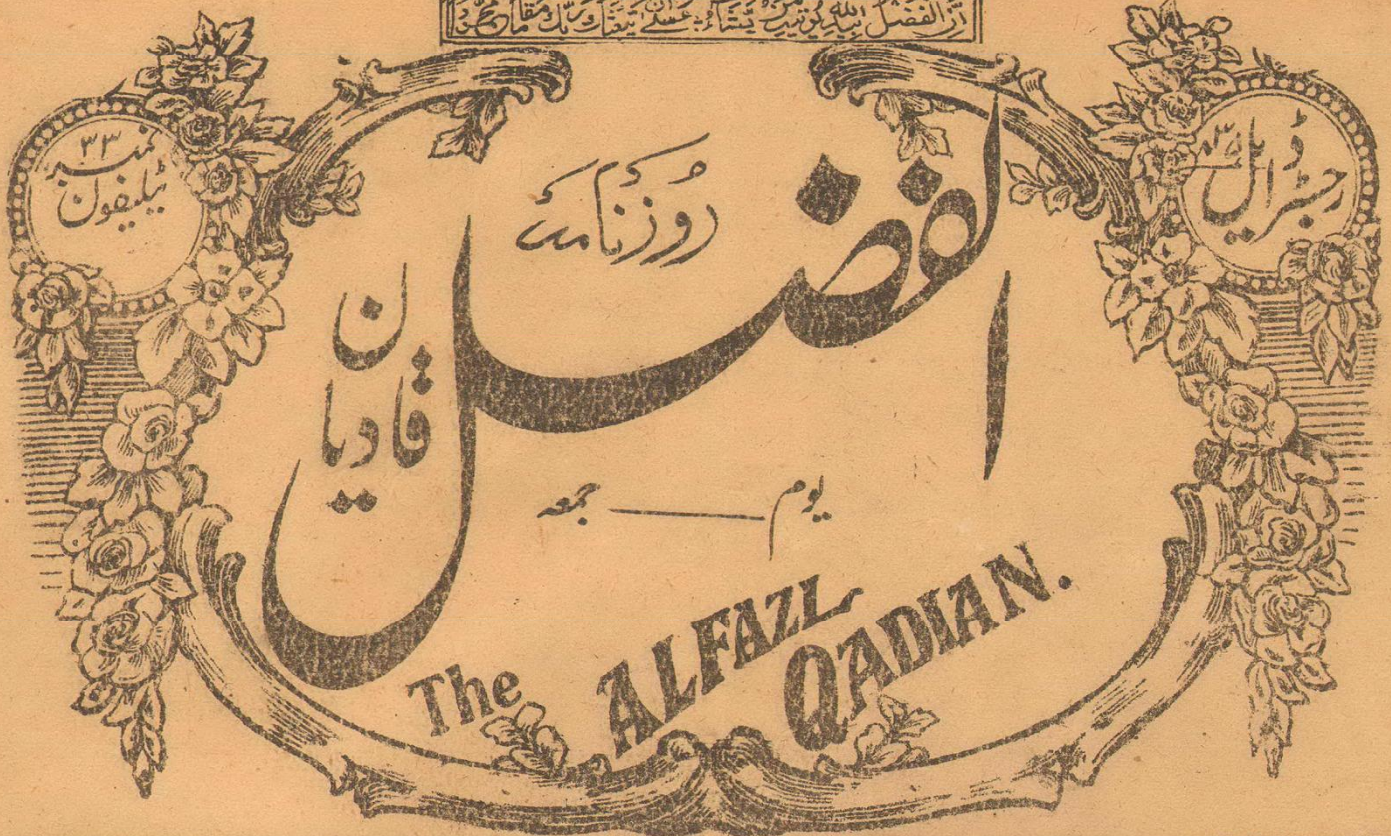 ان الفضل بيد الله يؤتيه من يشاء عسىٰ ان يبعثك ربك مقاما محمودا
رجسٹرڈ ایل
ٹیلیفون
نمبر ۳۳
روزنامہ
الفضل
قادیان
یوم ——— جمعہ
The ALFAZL
QADIAN.